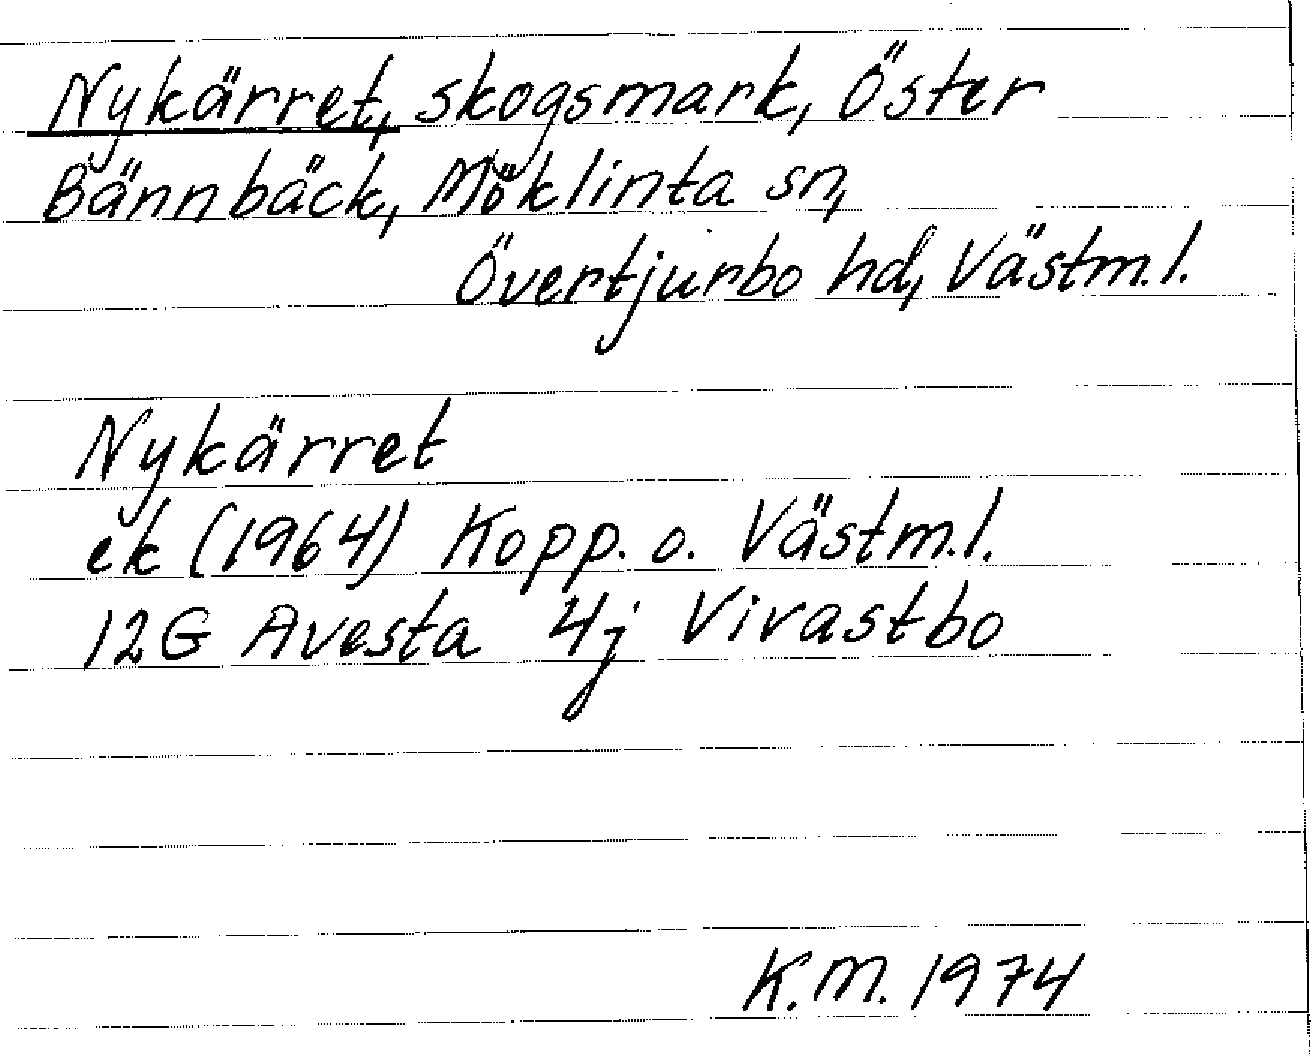 Nykärret, skogsmark, Öster
Bännbäck, Möklinta sn,
Övertjurbo hd, Västm.l.
Nykärret
ek (1964) Kopp. o. Västm.l.
12G Avesta 4j Vivastbo
K.M. 1974